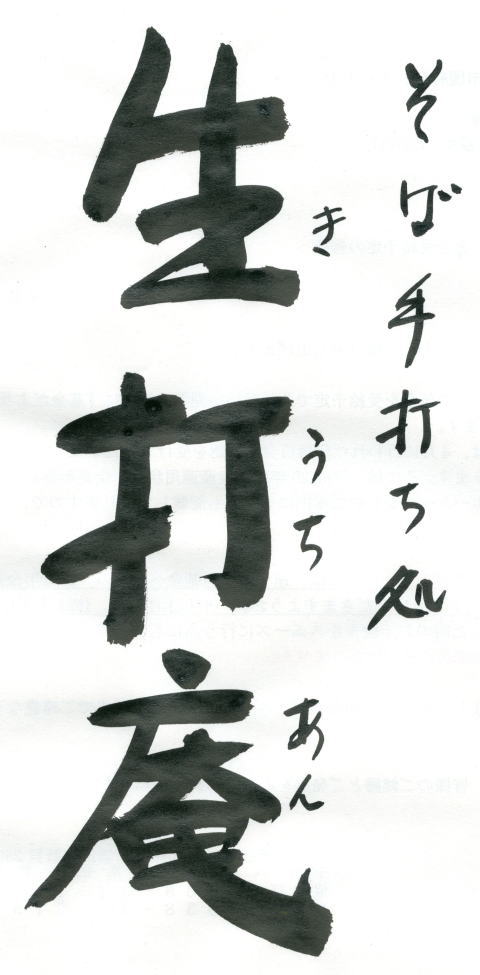 そば手打ち処
きうちあん
生打庵